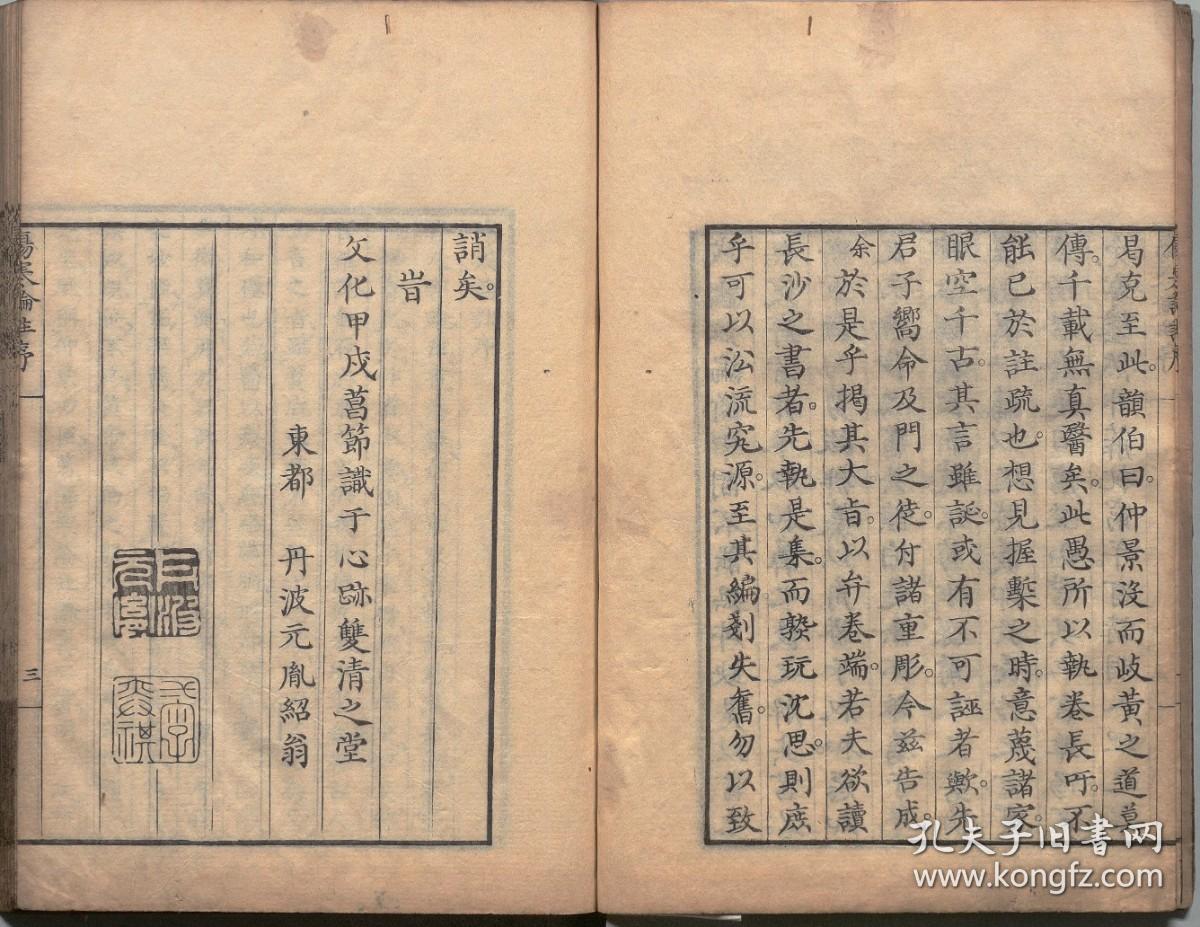 曷克至此。韻伯曰。仲景沒而岐黃之道莫
傳。千載無真醫矣。此愚所以執卷長吁。不
能已於註疏也。想見握槧之時。意蔑諸家。
眼空千古。其言雖誕。或有不可誣者歟。先
君子嚮命及門之徒。付諸重彫。今茲告成。
余於是乎揭其大旨。以弁卷端。若夫欲讀
長沙之書者。先執是集。而熟玩沈思。則庶
乎可以沿流究源。至其編剗失舊。勿以致
誚矣。
旹
文化甲戌菖節識于心跡雙清之堂
東都 丹波元胤紹翁
傷寒論註序
三
孔夫子旧书网
www.kongfz.com